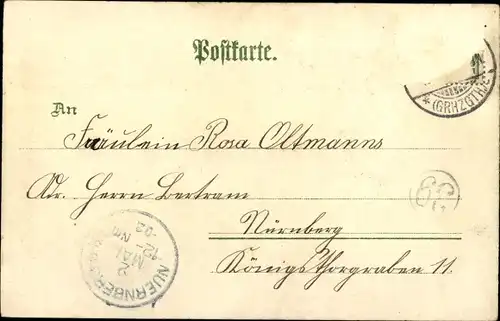 Postkarte.
(GRHZGTH.)
An
Fräulein Rosa Oltmanns
Adr. Herrn Bertram
Nürnberg
Königsthorgraben 11.
NUERNBERG
2 MAI
12-
NM
02